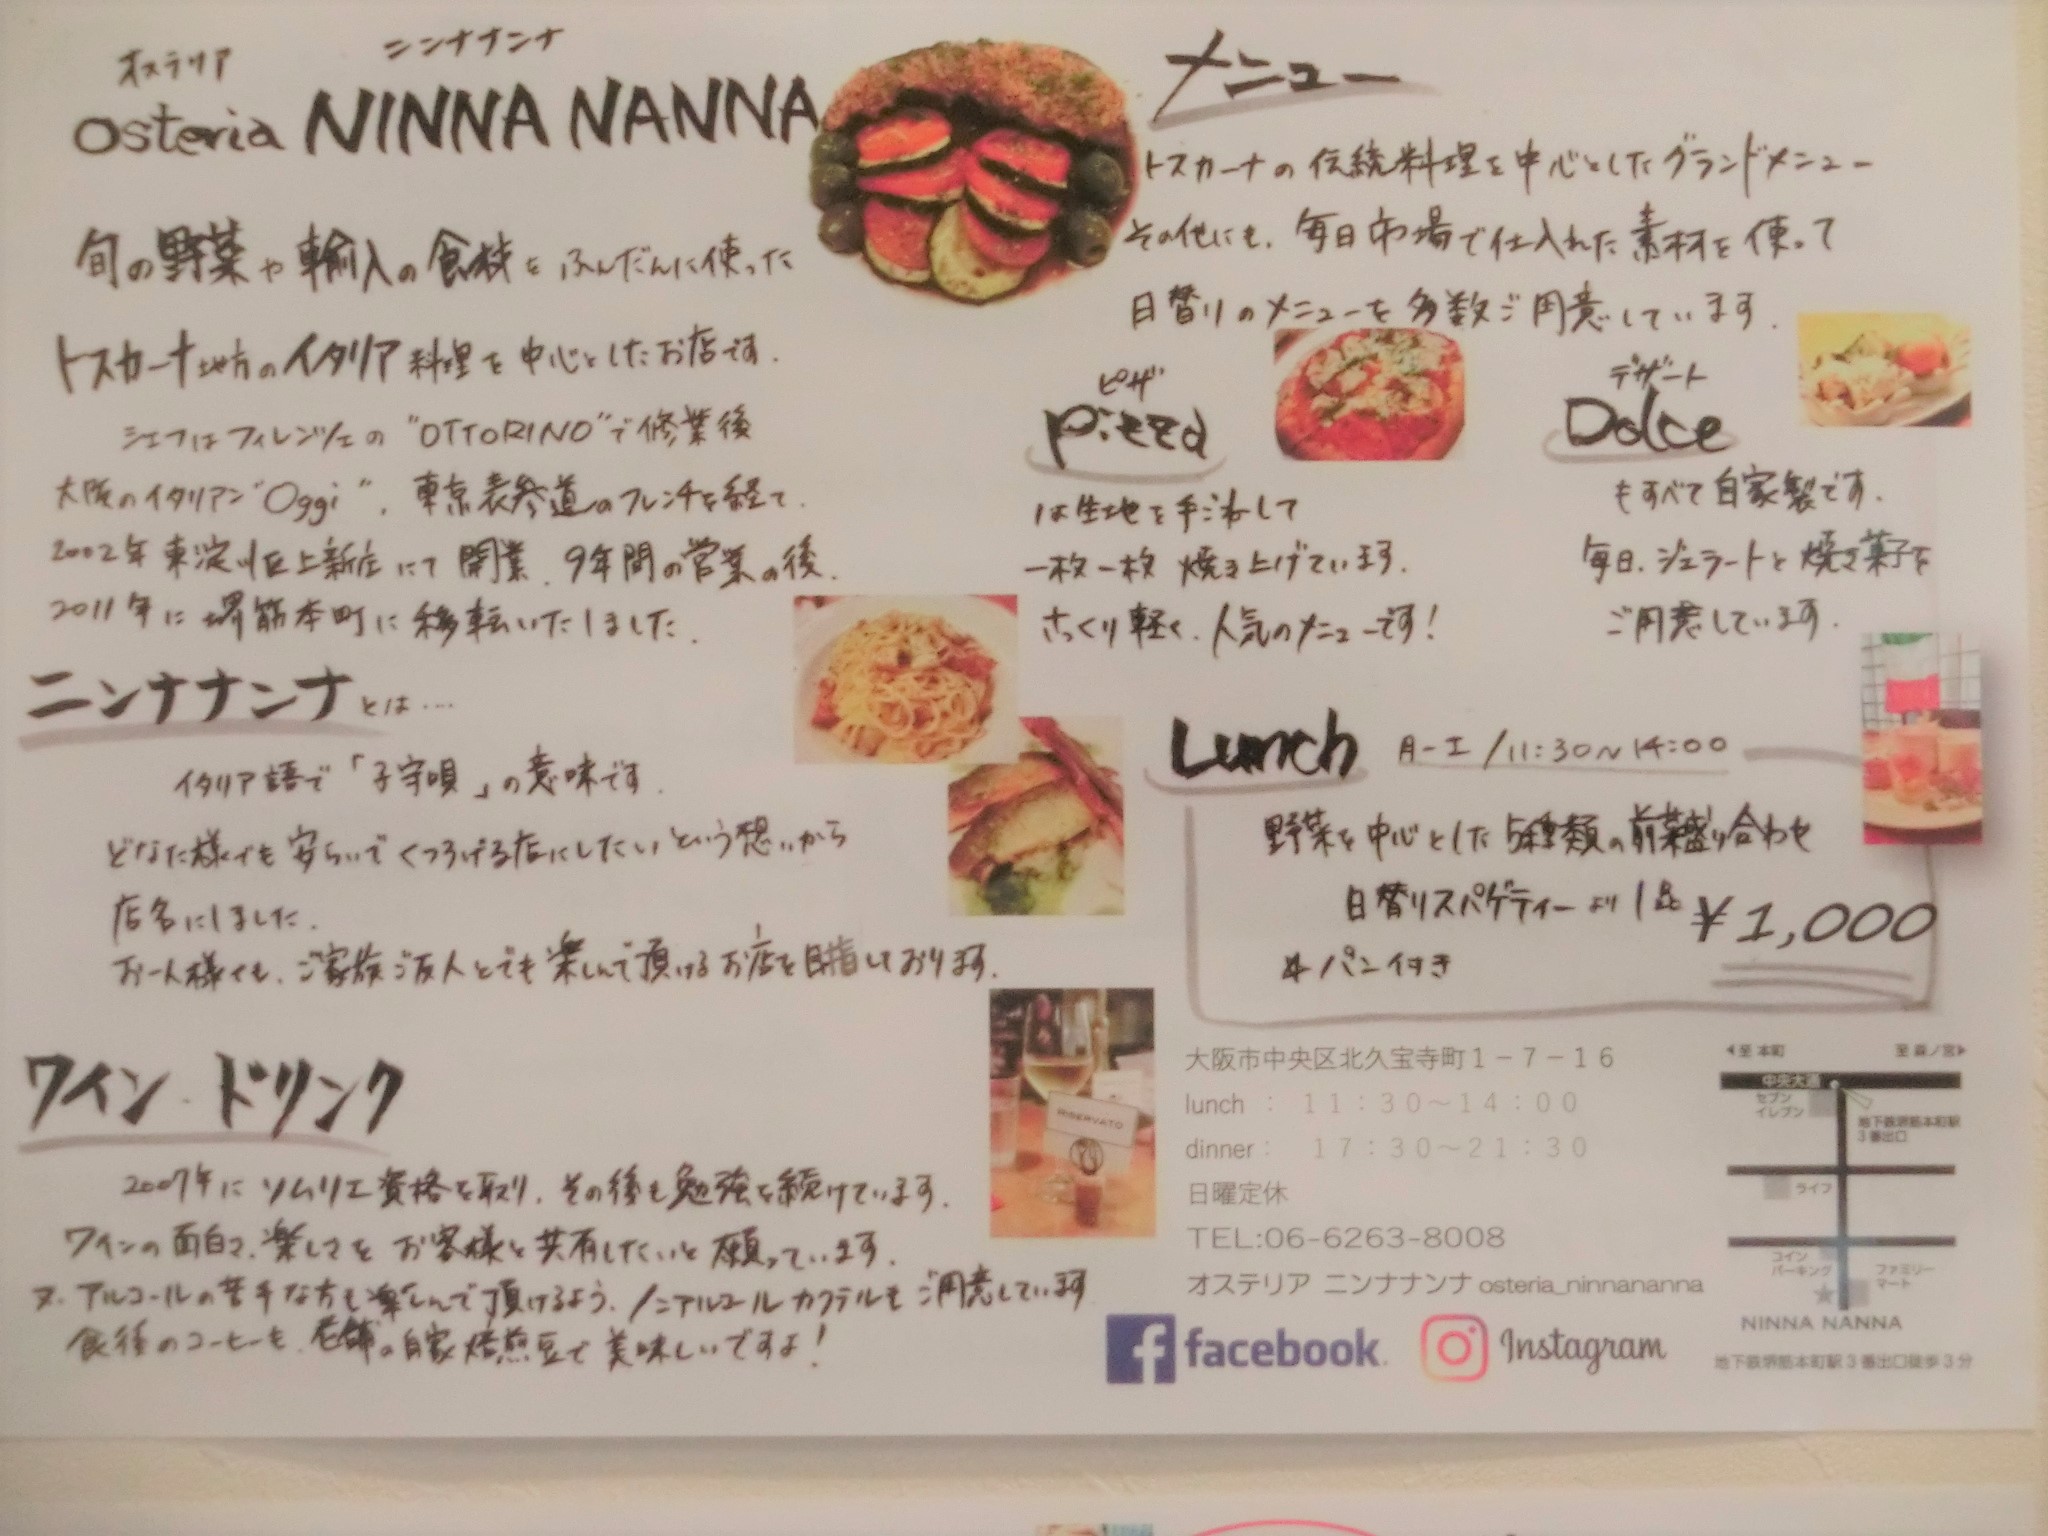 オステリア ニンナナンナ
osteria NINNA NANNA
旬の野菜や輸入の食材をふんだんに使った
トスカーナ地方のイタリア料理を中心としたお店です.
シェフはフィレンツェの"OTTORINO"で修業後
大阪のイタリアン"Oggi",東京表参道のフレンチを経て.
2002年東淀川区上新庄にて開業.9年間の営業の後.
2011年に堺筋本町に移転いたしました.
ニンナナンナとは‥‥
イタリア語で「子守唄」の意味です.
どなた様でも安らいでくつろげる店にしたいという想いから
店名にしました.
お一人様でも、ご家族ご友人とでも楽しんで頂けるお店を目指しております.
ワイン・ドリンク
2007年にソムリエ資格を取り.その後も勉強を続けています.
ワインの面白さ、楽しさをお客様と共有したいと願っています.
又、アルコールの苦手な方も楽しんで頂けるよう、ノンアルコールカクテルもご用意しています
食後のコーヒーも、老舗の自家焙煎豆で美味しいですよ!
メニュー
トスカーナの伝統料理を中心としたグランドメニュー
その他にも、毎日市場で仕入れた素材を使って
日替りのメニューを多数ご用意しています.
ピザ
Pizza
は生地を手ごねして
一枚一枚焼き上げています.
さっくり軽く、人気のメニューです!
デザート
Dolce
もすべて自家製です.
毎日、ジェラートと焼き菓子を
ご用意しています.
Lunch 月-土/11:30~14:00
野菜を中心とした5種類の前菜盛り合わせ
日替りスパゲティーより1品
¥1,000
パン付き
RISERVATO
大阪市中央区北久宝寺町1-7-16
lunch : 11:30~14:00
dinner: 17:30~21:30
日曜定休
TEL:06-6263-8008
オステリア ニンナナンナ osteria_ninnananna
facebook.
Instagram
◀至 本町 至 森ノ宮▶
中央大通
セブン
イレブン
地下鉄堺筋本町駅
3番出口
ライフ
コイン
パーキング
ファミリー
マート
NINNA NANNA
地下鉄堺筋本町駅3番出口徒歩3分